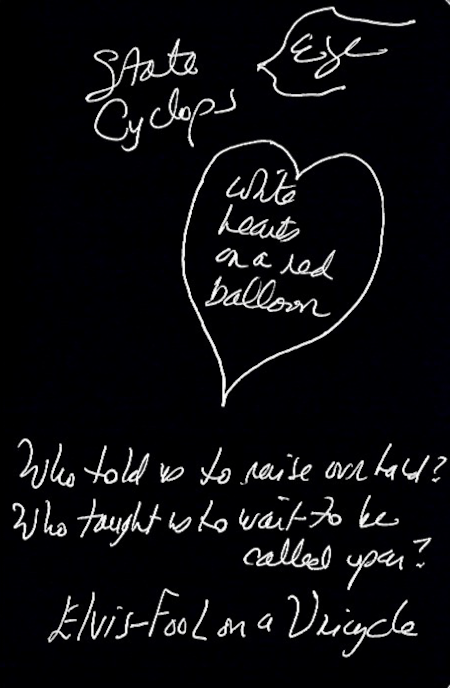 State
Cyclops
Eye
white
hearts
on a red
balloon
Who told us to raise our hand?
Who taught us to wait to be
called upon?
Elvis-Fool on a Unicycle